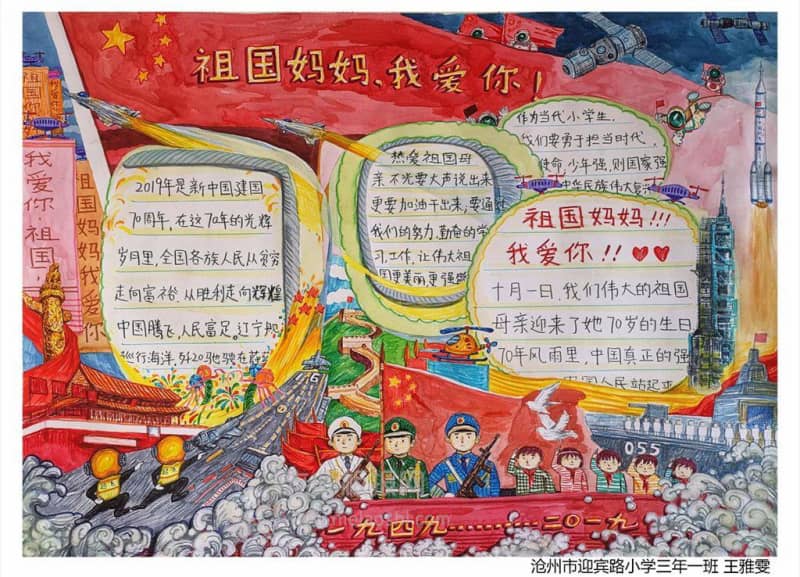 祖国妈妈、我爱你!
我爱你·祖国
祖国妈妈我爱你
2019年是新中国建国
70周年,在这70年的光辉
岁月里,全国各族人民从贫穷
走向富裕,从胜利走向辉煌
中国腾飞,人民富足。辽宁舰
巡行海洋,歼20驰骋在蔚蓝
热爱祖国母
亲不光要大声说出来
更要加油干出来,要通过
我们的努力、勤奋的学
习、工作,让伟大祖
国更美丽更强盛
作为当代小学生,
我们要勇于担当时代
使命,少年强,则国家强
中华民族伟大复兴
祖国妈妈!!!
我爱你!!
十月一日,我们伟大的祖国
母亲迎来了她70岁的生日
70年风雨里,中国真正的强
国人民站起来
16
055
一九四九………二〇一九
沧州市迎宾路小学三年一班 王雅雯